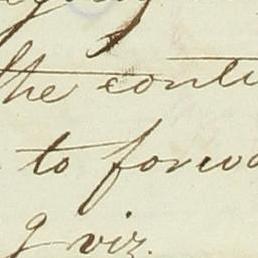 the conti
to forwa
g viz.